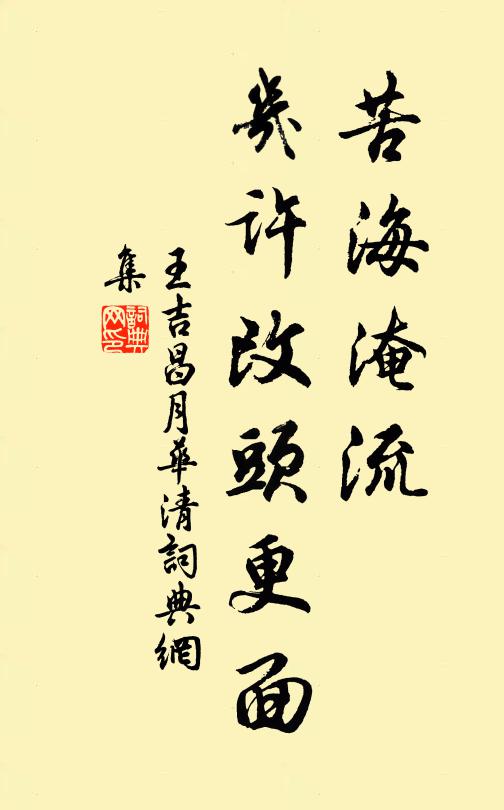 苦海淹流
幾许改頭更面
王吉昌月華清詞典網
集
詞典
网印